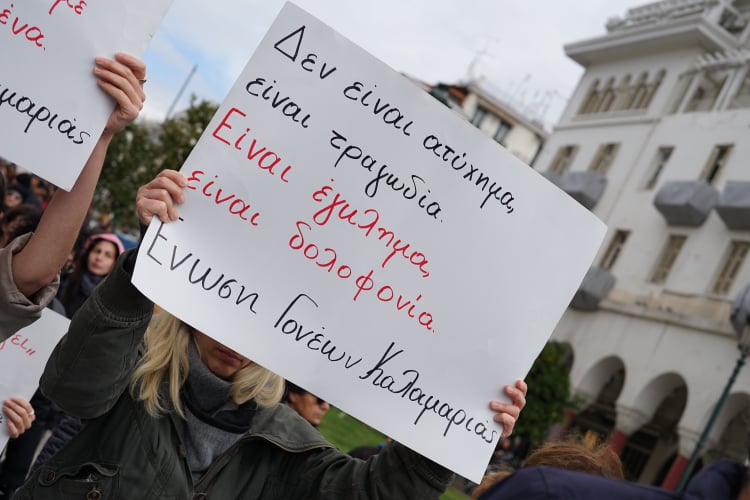 με
ένα.
αμαριάς
Δεν είναι ατύχημα,
είναι τραγωδία.
Είναι έγκλημα,
είναι δολοφονία.
Ένωση Γονέων Καλαμαριάς
ει"